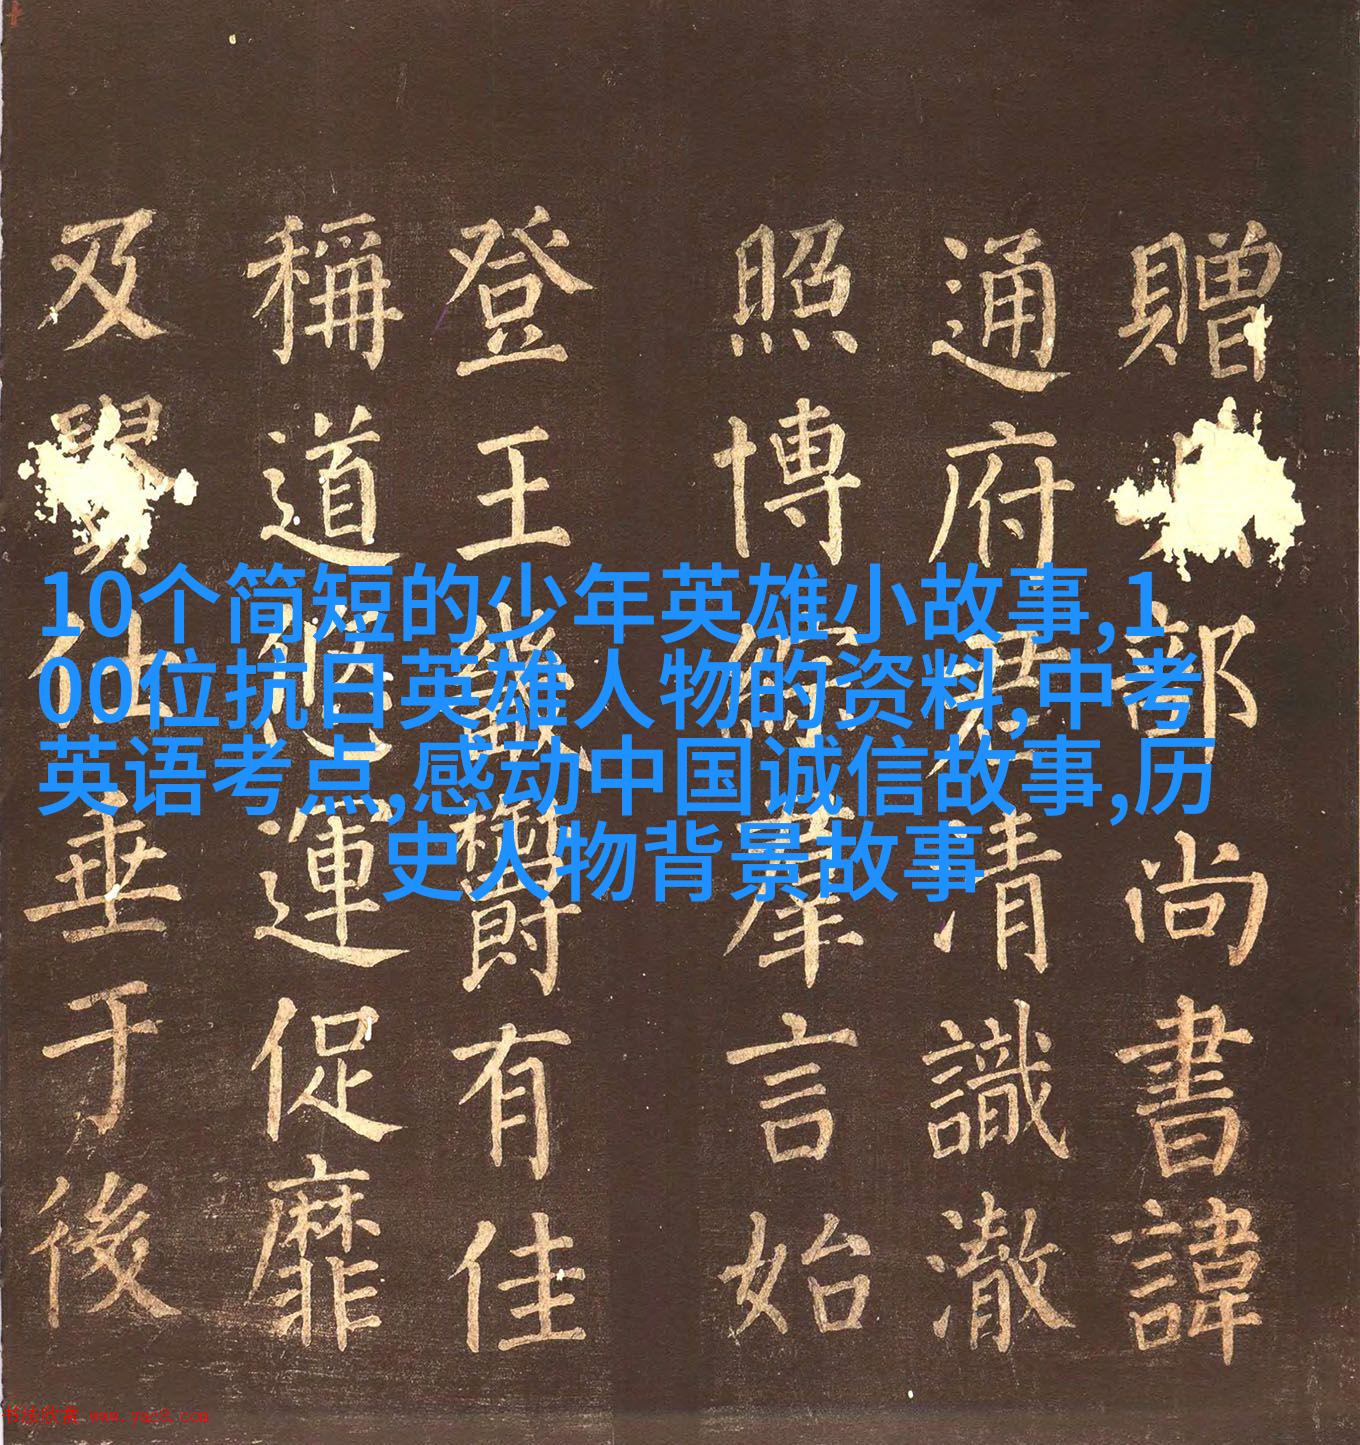 10个简短的少年英雄小故事,1
00位抗日英雄人物的资料,中考
英语考点,感动中国诚信故事,历
史人物背景故事
贈部尚書諱
通府君清識澈
照博羣言始
登王畿欝有佳
稱道悠運促靡
及仕垂于後
书法欣赏 www.yac8.com